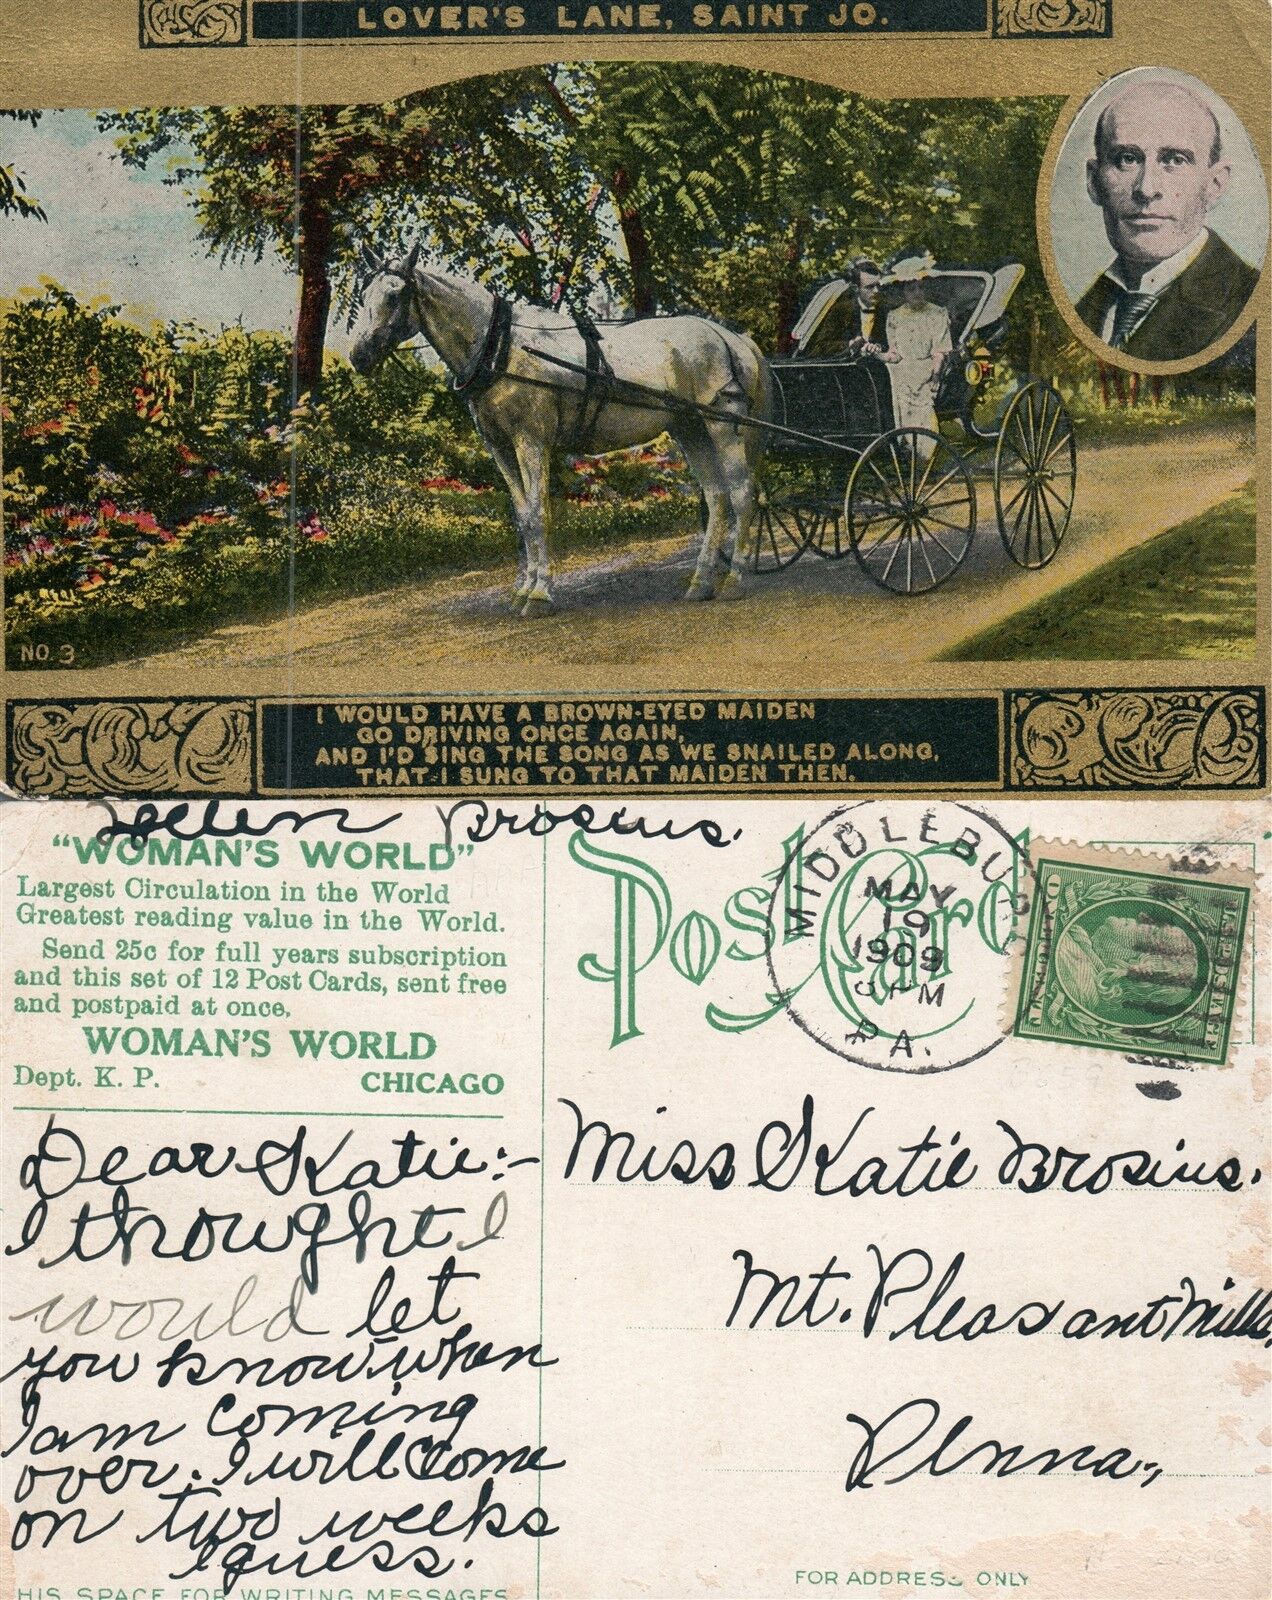 LOVER'S LANE, SAINT JO.
NO. 3
I WOULD HAVE A BROWN-EYED MAIDEN
GO DRIVING ONCE AGAIN,
AND I'D SING THE SONG AS WE SNAILED ALONG,
THAT I SUNG TO THAT MAIDEN THEN.
Helen Brosius.
"WOMAN'S WORLD"
Largest Circulation in the World
Greatest reading value in the World.
Send 25c for full years subscription
and this set of 12 Post Cards, sent free
and postpaid at once.
WOMAN'S WORLD
Dept. K. P. CHICAGO
Dear Katie:-
I thought I
would let
you know when
I am coming
over. I will come
on two weeks
I guess.
HIS SPACE FOR WRITING MESSAGES
Post Card
MIDDLEBUR
MAY
19
1909
PM
PA.
Miss Katie Brosius.
Mt. Pleasant Mills,
Penna.,
FOR ADDRESS ONLY